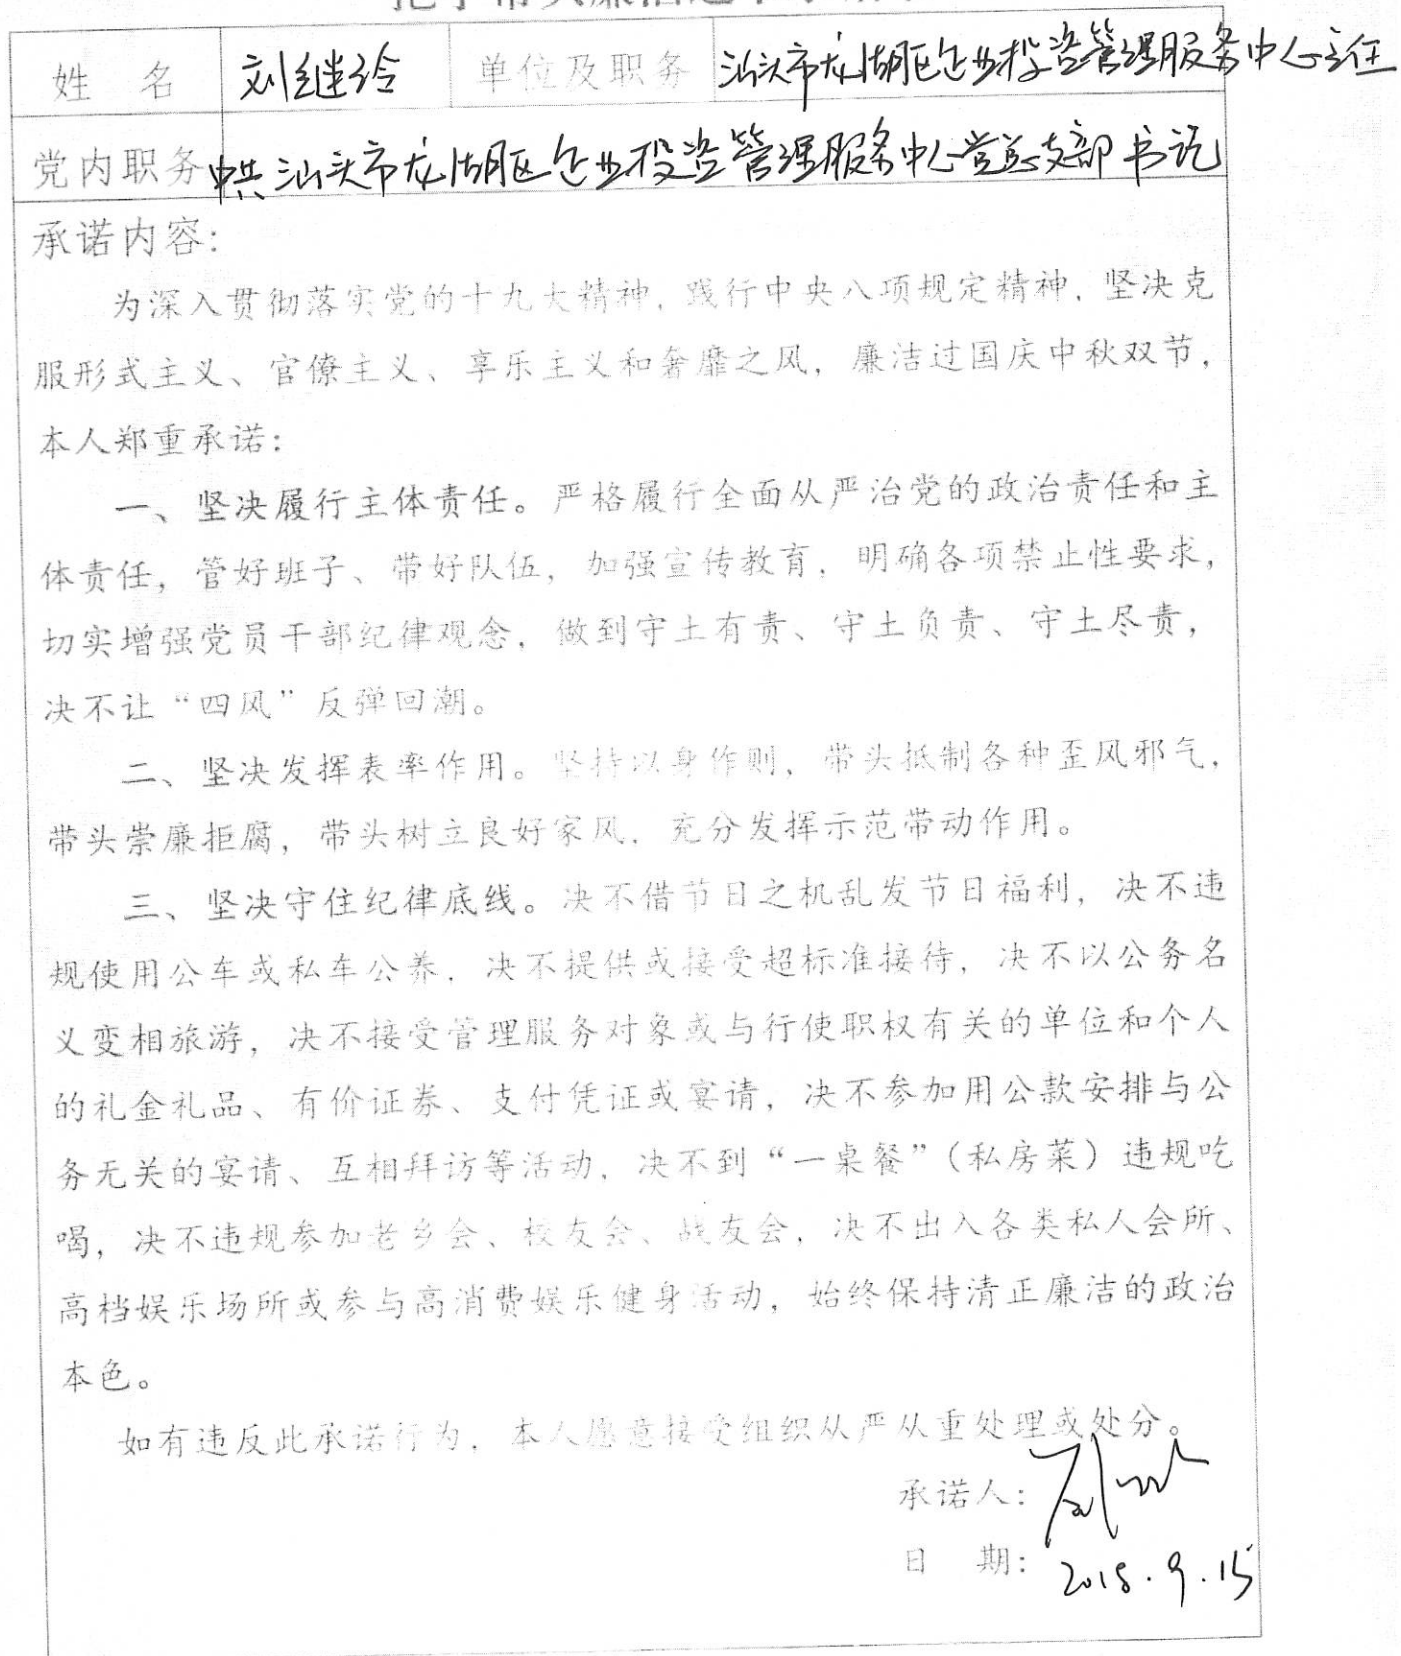 姓 名 刘继玲 单位及职务 汕头市龙湖区企业投资管理服务中心主任
党内职务 中共汕头市龙湖区企业投资管理服务中心党总支部书记
承诺内容：
为深入贯彻落实党的十九大精神，践行中央八项规定精神，坚决克
服形式主义、官僚主义、享乐主义和奢靡之风，廉洁过国庆中秋双节，
本人郑重承诺：
一、坚决履行主体责任。严格履行全面从严治党的政治责任和主
体责任，管好班子、带好队伍，加强宣传教育，明确各项禁止性要求，
切实增强党员干部纪律观念，做到守土有责、守土负责、守土尽责，
决不让“四风”反弹回潮。
二、坚决发挥表率作用。坚持以身作则，带头抵制各种歪风邪气，
带头崇廉拒腐，带头树立良好家风，充分发挥示范带动作用。
三、坚决守住纪律底线。决不借节日之机乱发节日福利，决不违
规使用公车或私车公养，决不提供或接受超标准接待，决不以公务名
义变相旅游，决不接受管理服务对象或与行使职权有关的单位和个人
的礼金礼品、有价证券、支付凭证或宴请，决不参加用公款安排与公
务无关的宴请、互相拜访等活动，决不到“一桌餐”（私房菜）违规吃
喝，决不违规参加老乡会、校友会、战友会，决不出入各类私人会所、
高档娱乐场所或参与高消费娱乐健身活动，始终保持清正廉洁的政治
本色。
如有违反此承诺行为，本人愿意接受组织从严从重处理或处分。
承诺人：
日 期：2018.9.15